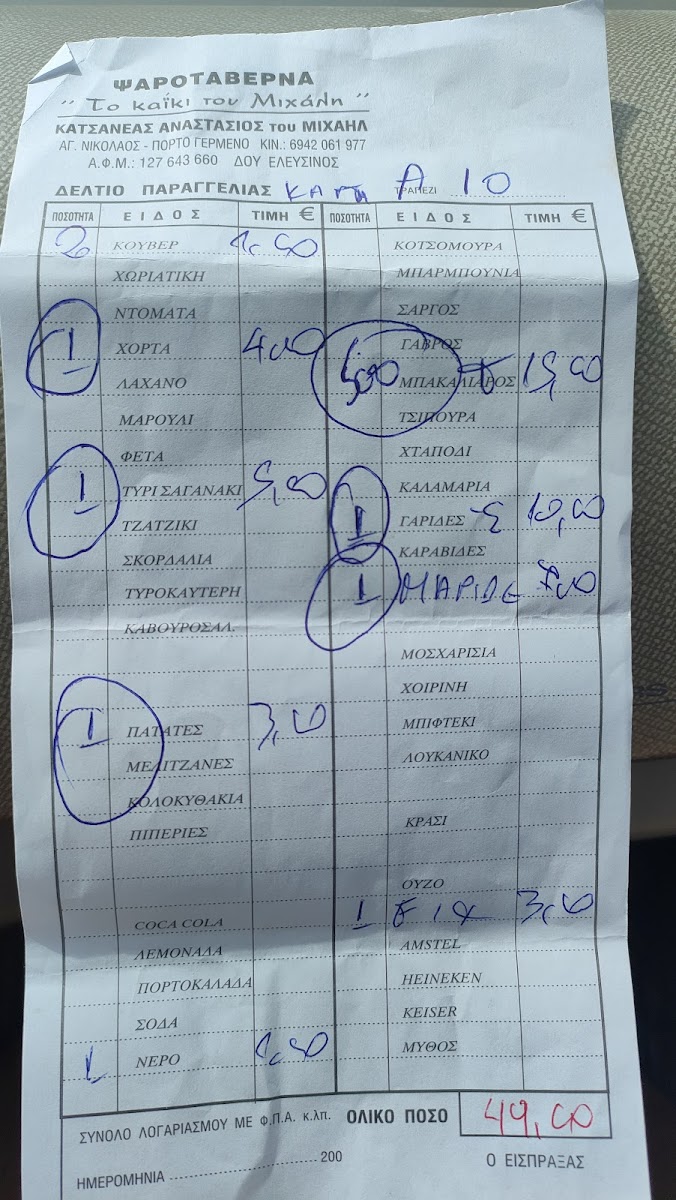 ΨΑΡΟΤΑΒΕΡΝΑ
"Το καϊκι του Μιχάλη"
ΚΑΤΣΑΝΕΑΣ ΑΝΑΣΤΑΣΙΟΣ του ΜΙΧΑΗΛ
ΑΓ. ΝΙΚΟΛΑΟΣ - ΠΟΡΤΟ ΓΕΡΜΕΝΟ ΚΙΝ.: 6942 061 977
Α.Φ.Μ.: 127 643 660 ΔΟΥ ΕΛΕΥΣΙΝΟΣ
ΔΕΛΤΙΟ ΠΑΡΑΓΓΕΛΙΑΣ ΤΡΑΠΕΖΙ Α 10
ΠΟΣΟΤΗΤΑ ΕΙΔΟΣ ΤΙΜΗ €
2 ΚΟΥΒΕΡ 1,00
ΧΩΡΙΑΤΙΚΗ
ΝΤΟΜΑΤΑ
1 ΧΟΡΤΑ 4,00
ΛΑΧΑΝΟ
ΜΑΡΟΥΛΙ
ΦΕΤΑ
1 ΤΥΡΙ ΣΑΓΑΝΑΚΙ 5,00
ΤΖΑΤΖΙΚΙ
ΣΚΟΡΔΑΛΙΑ
ΤΥΡΟΚΑΥΤΕΡΗ
ΚΑΒΟΥΡΟΣΑΛ.
1 ΠΑΤΑΤΕΣ 3,00
ΜΕΛΙΤΖΑΝΕΣ
ΚΟΛΟΚΥΘΑΚΙΑ
ΠΙΠΕΡΙΕΣ
COCA COLA
ΛΕΜΟΝΑΔΑ
ΠΟΡΤΟΚΑΛΑΔΑ
ΣΟΔΑ
1 ΝΕΡΟ
ΠΟΣΟΤΗΤΑ ΕΙΔΟΣ ΤΙΜΗ €
ΚΟΤΣΟΜΟΥΡΑ
ΜΠΑΡΜΠΟΥΝΙΑ
ΣΑΡΓΟΣ
ΓΑΒΡΟΣ
ΜΠΑΚΑΛΙΑΡΟΣ 15,00
ΤΣΙΠΟΥΡΑ
ΧΤΑΠΟΔΙ
ΚΑΛΑΜΑΡΙΑ
1 ΓΑΡΙΔΕΣ 10,00
ΚΑΡΑΒΙΔΕΣ
1 ΜΑΡΙΔΕ 7,00
ΜΟΣΧΑΡΙΣΙΑ
ΧΟΙΡΙΝΗ
ΜΠΙΦΤΕΚΙ
ΛΟΥΚΑΝΙΚΟ
ΚΡΑΣΙ
ΟΥΖΟ
1 FIX 3,00
AMSTEL
HEINEKEN
KEISER
ΜΥΘΟΣ
ΣΥΝΟΛΟ ΛΟΓΑΡΙΑΣΜΟΥ ΜΕ Φ.Π.Α. κ.λπ. ΟΛΙΚΟ ΠΟΣΟ 49,00
ΗΜΕΡΟΜΗΝΙΑ 200 Ο ΕΙΣΠΡΑΞΑΣ